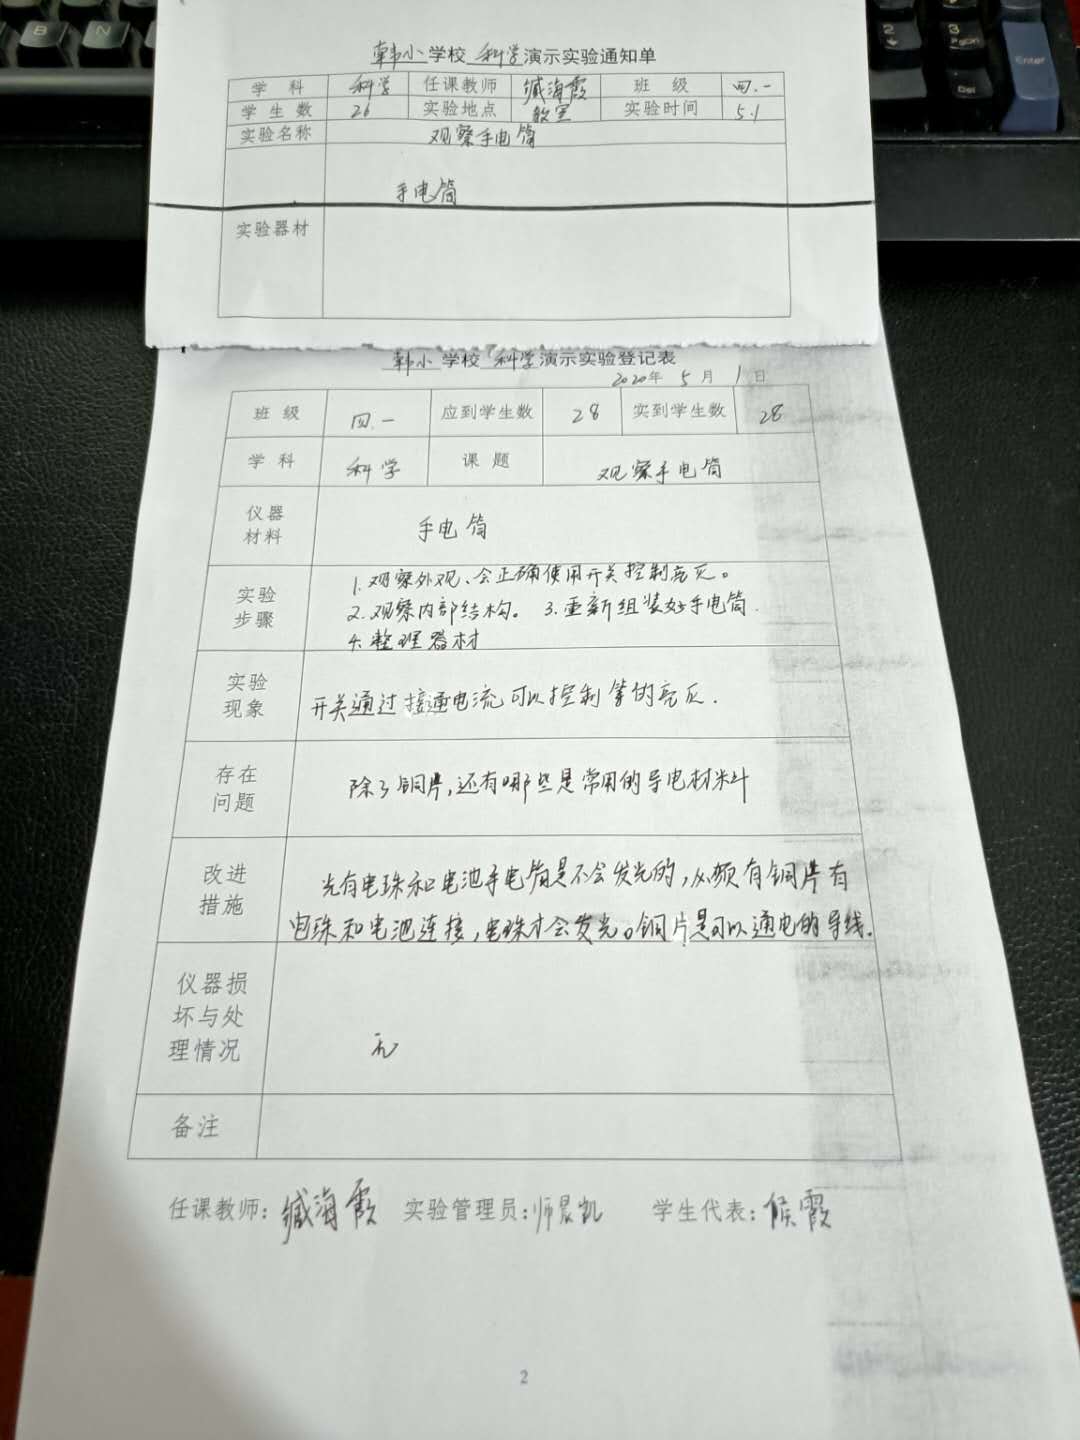 韩小学校 科学演示实验通知单
学 科 科学 任课教师 臧海霞 班 级 四.一
学 生 数 26 实验地点 教室 实验时间 5.1
实验名称 观察手电筒
手电筒
实验器材
韩小学校 科学演示实验登记表
2020年 5月 1日
班 级 四.一 应到学生数 28 实到学生数 28
学 科 科学 课 题 观察手电筒
仪器
材料 手电筒
1.观察外观、会正确使用开关控制亮灭。
实验
步骤 2.观察内部结构。 3.重新组装好手电筒.
4.整理器材
实验
现象 开关通过接通电流可以控制筒的亮灭.
存在
问题 除了铜片,还有哪些是常用的导电材料
改进
措施 光有电珠和电池手电筒是不会发光的,必须有铜片有
电珠和电池连接,电珠才会发光。铜片是可以通电的导线.
仪器损
坏与处
理情况 无
备注
任课教师: 臧海霞 实验管理员: 师晨凯 学生代表: 侯霞
2
Enter
Del